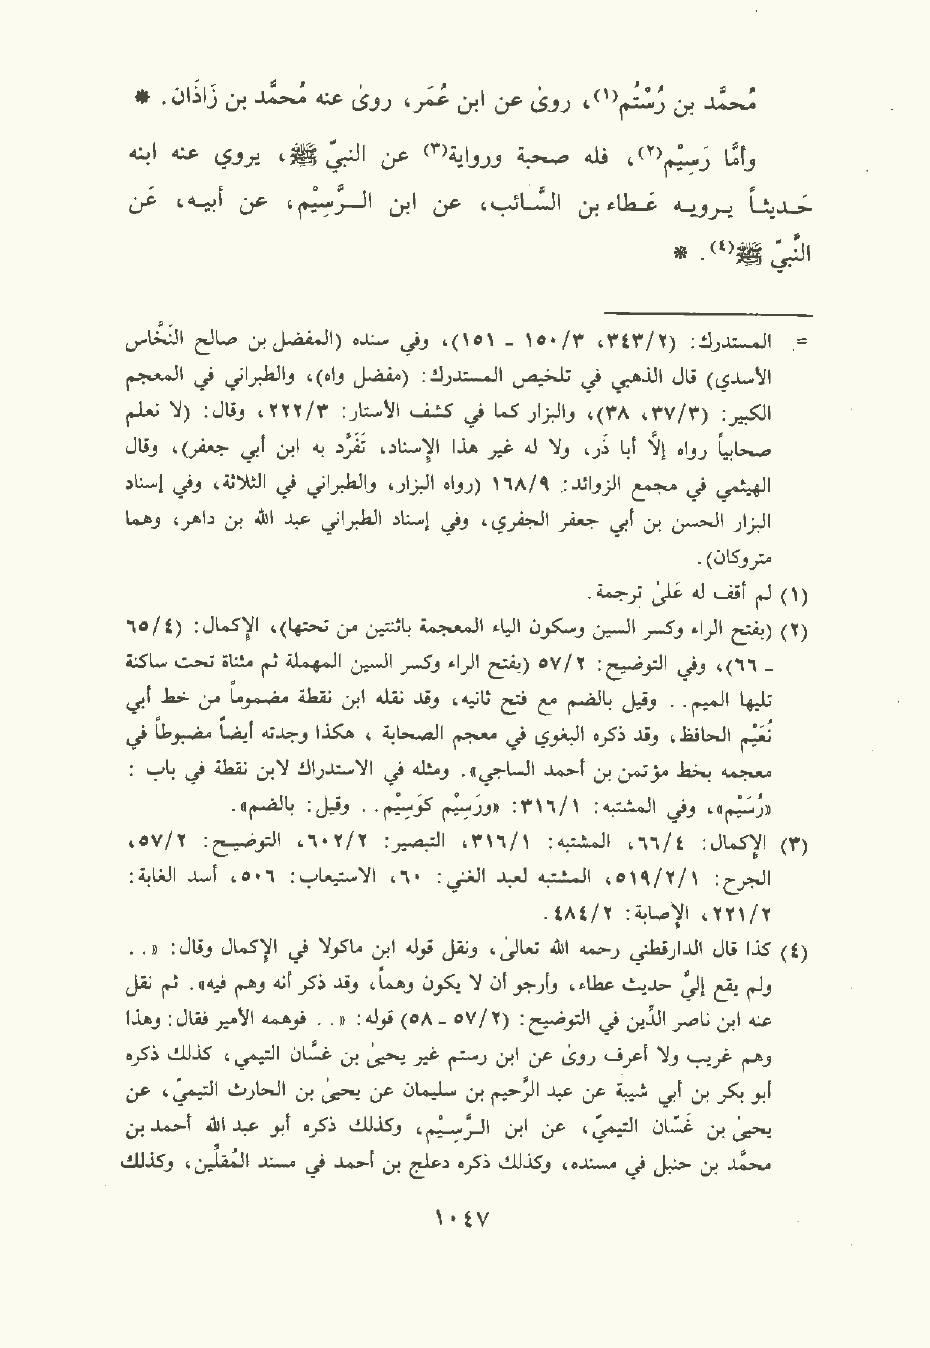 مُحمَّد بن رُسْتُم(١)، روىٰ عن ابن عُمَر، روىٰ عنه مُحمَّد بن زَاذَان. *
وأمّا رَسِيْم(٢)، فله صحبة ورواية(٣) عن النبيّ ﷺ، يروي عنه ابنه
حَديثاً يرويه عَطاء بن السَّائب، عن ابن الرَّسِيْم، عن أبيه، عَن
النَّبيّ ﷺ(٤). *
= المستدرك: (٣٤٣/٢، ١٥٠/٣ - ١٥١)، وفي سنده (المفضل بن صالح النَخَّاس
الأسدي) قال الذهبي في تلخيص المستدرك: (مفضل واه)، والطبراني في المعجم
الكبير: (٣٧/٣، ٣٨)، والبزار كما في كشف الأستار: ٢٢٢/٣، وقال: (لا نعلم
صحابياً رواه إلّا أبا ذَر، ولا له غير هذا الإسناد، تَفَرَّد به ابن أبي جعفر)، وقال
الهيثمي في مجمع الزوائد: ١٦٨/٩ (رواه البزار، والطبراني في الثلاثة، وفي إسناد
البزار الحسن بن أبي جعفر الجفري، وفي إسناد الطبراني عبد الله بن داهر، وهما
متروكان).
(١) لم أقف له عَلىٰ ترجمة.
(٢) (بفتح الراء وكسر السين وسكون الياء المعجمة باثنتين من تحتها)، الإكمال: (٦٥/٤
- ٦٦)، وفي التوضيح: ٥٧/٢ (بفتح الراء وكسر السين المهملة ثم مثناة تحت ساكنة
تليها الميم.. وقيل بالضم مع فتح ثانيه، وقد نقله ابن نقطة مضموماً من خط أبي
نُعَيْم الحافظ، وقد ذكره البغوي في معجم الصحابة، هكذا وجدته أيضاً مضبوطاً في
معجمه بخط مؤتمن بن أحمد الساجي». ومثله في الاستدراك لابن نقطة في باب:
«رُسَيْم»، وفي المشتبه: ٣١٦/١: «ورَسِيْم كَوَسِيْم.. وقيل: بالضم».
(٣) الإكمال: ٦٦/٤، المشتبه: ٣١٦/١، التبصير: ٦٠٢/٢، التوضيح: ٥٧/٢،
الجرح: ٥١٩/٢/١، المشتبه لعبد الغني: ٦٠، الاستيعاب: ٥٠٦، أسد الغابة:
٢٢١/٢، الإصابة: ٤٨٤/٢.
(٤) كذا قال الدارقطني رحمه الله تعالىٰ، ونقل قوله ابن ماكولا في الإكمال وقال: «..
ولم يقع إليّ حديث عطاء، وأرجو أن لا يكون وَهماً، وقد ذكر أنه وهم فيه». ثم نقل
عنه ابن ناصر الدِّين في التوضيح: (٥٧/٢ - ٥٨) قوله: «.. فوهمه الأمير فقال: وهذا
وهم غريب ولا أعرف روىٰ عن ابن رسيم غير يحيىٰ بن غسَّان التيمي، كذلك ذكره
أبو بكر بن أبي شيبة عن عبد الرَّحيم بن سليمان عن يحيىٰ بن الحارث التيميّ، عن
يحيىٰ بن غَسَّان التيميّ، عن ابن الرَّسِيْم، وكذلك ذكره أبو عبد الله أحمد بن
محمَّد بن حنبل في مسنده، وكذلك ذكره دعلج بن أحمد في مسند المُقلِّين، وكذلك
١٠٤٧